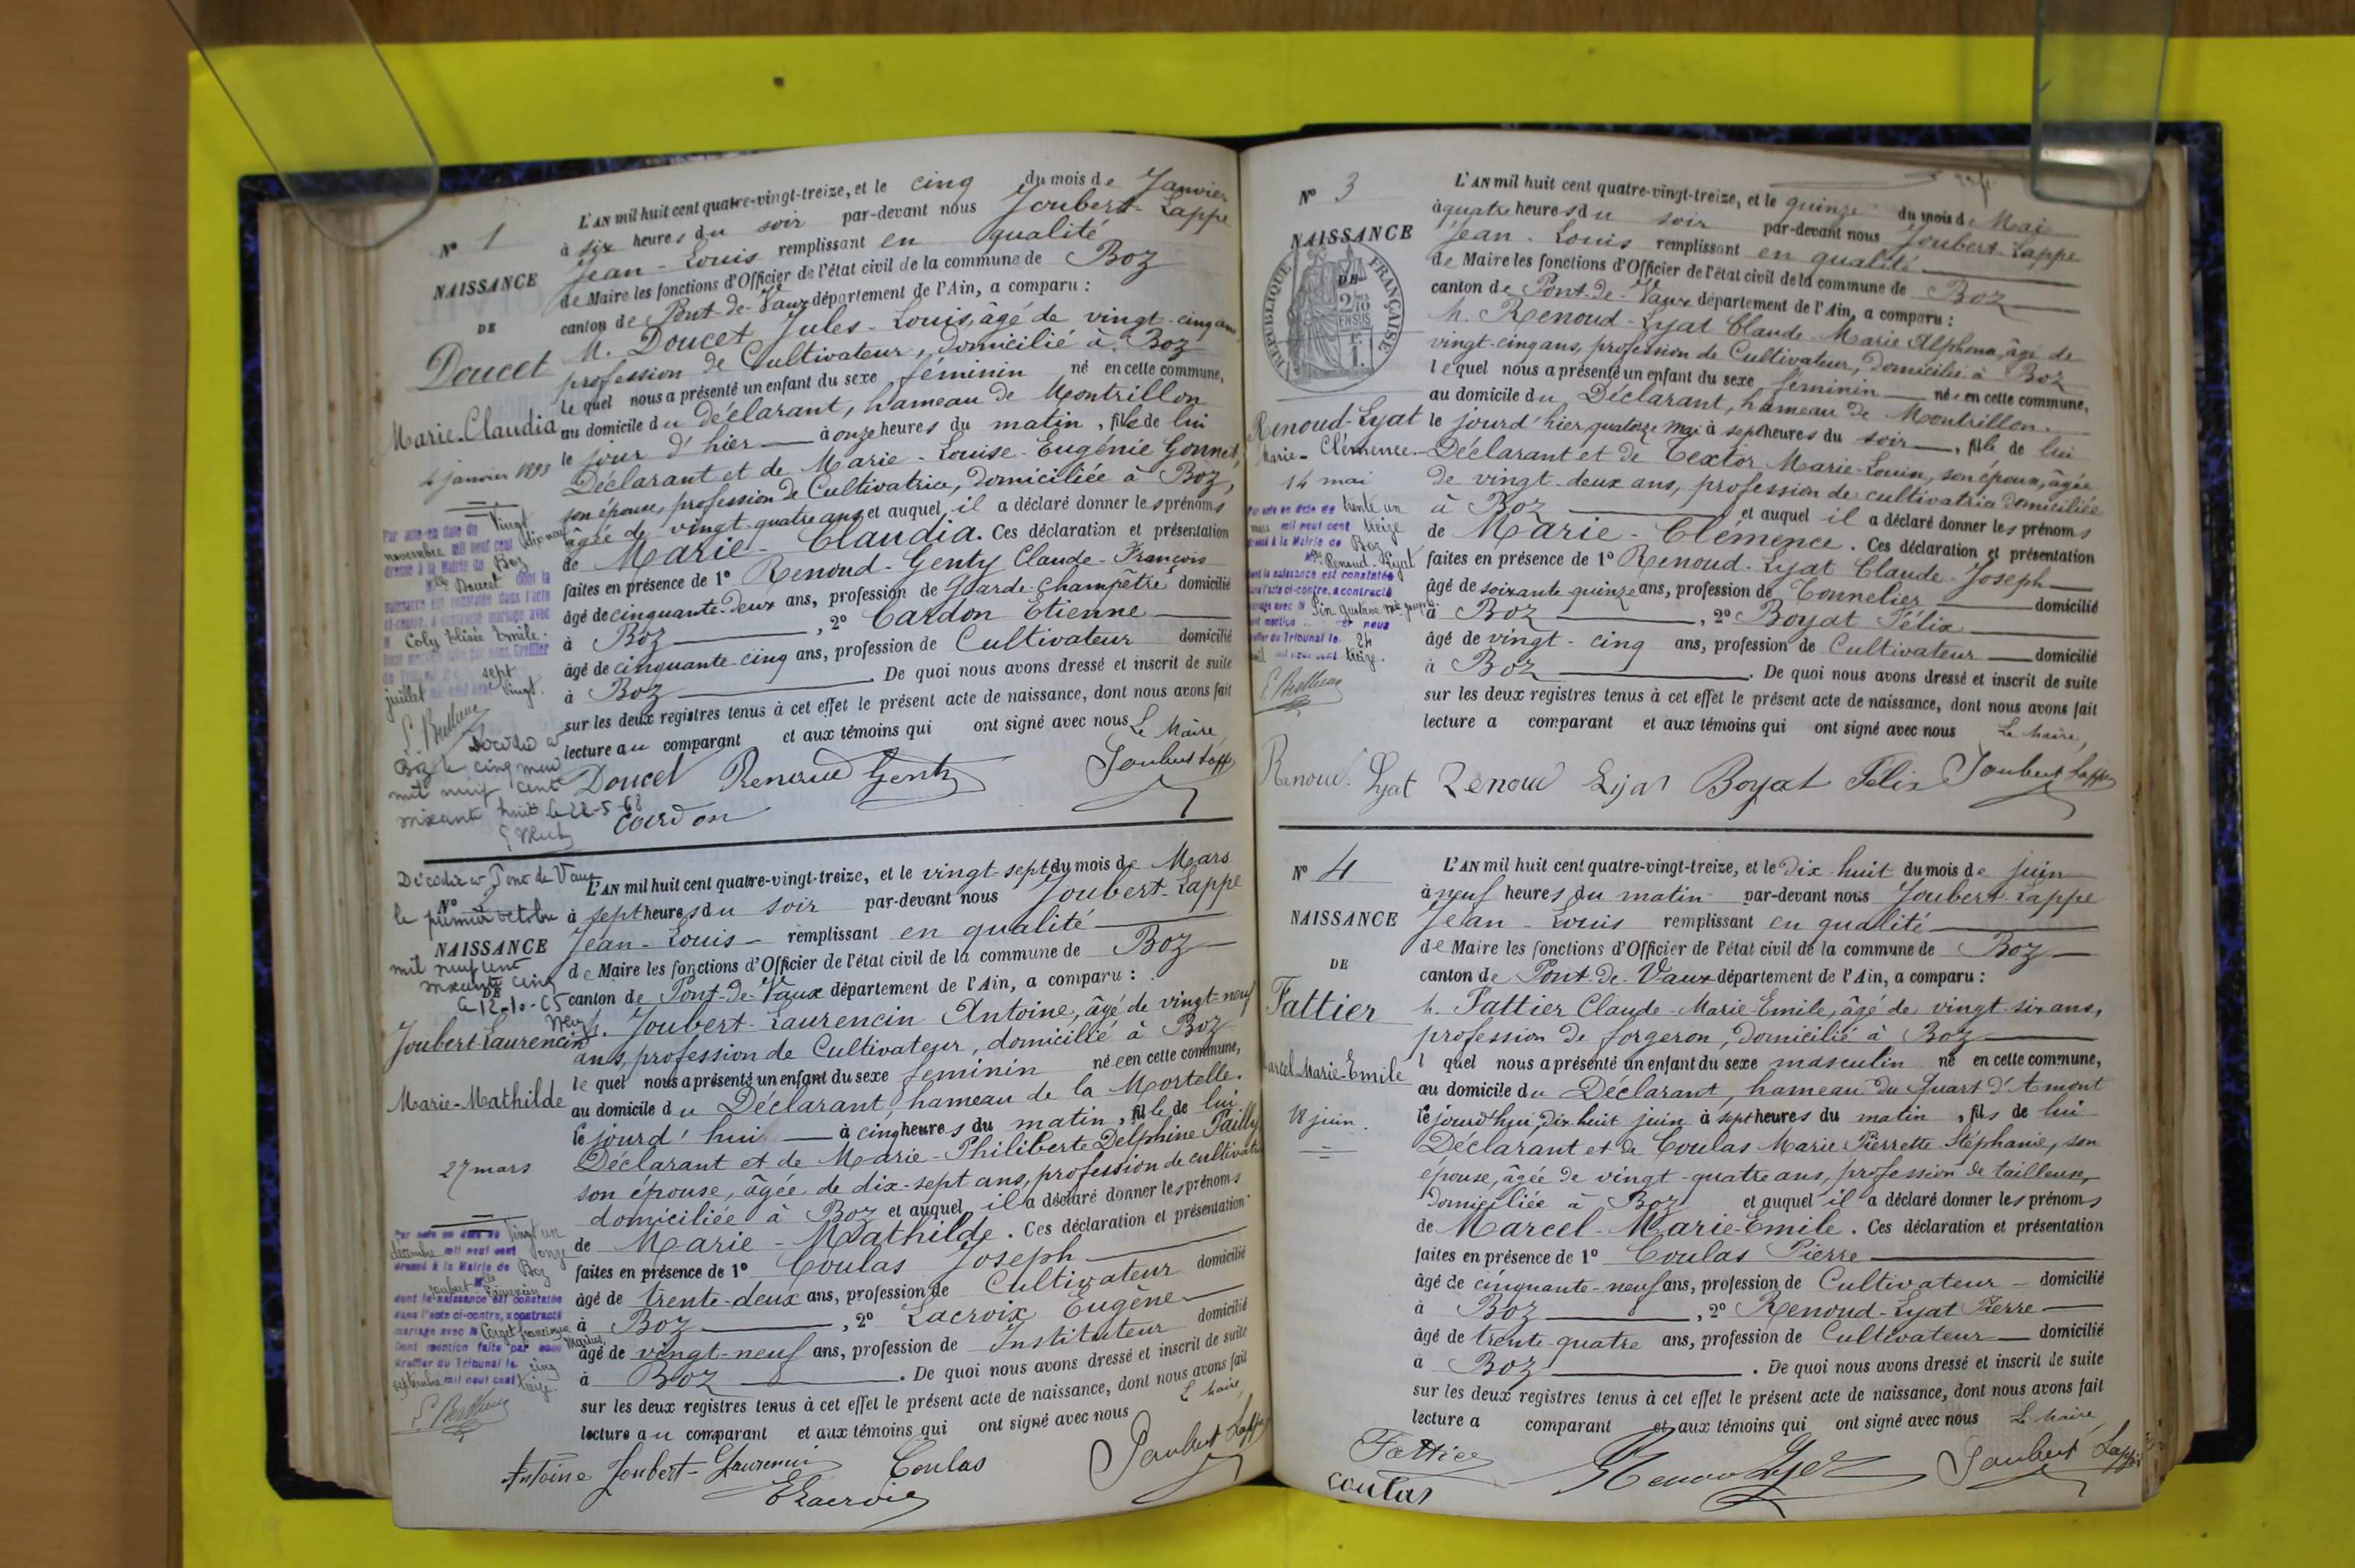 N° 1
NAISSANCE
DE
Doucet
Marie-Claudia
4 janvier 1893
Par acte en date du Vingt
novembre mil neuf cent dix neuf
dressé à la Mairie de Boz
Mlle Doucet dont la
naissance est constatée dans l'acte
ci-contre, a contracté mariage avec
M Coly Elisée Emile.
Dont mention faite par nous, Greffier
du Tribunal le sept
juillet mil neuf cent vingt.
Décédée à
Boz le cinq mai
mil neuf cent
soixante huit le 22-5-68
L'AN mil huit cent quatre-vingt-treize, et le cinq du mois de Janvier
à six heures du soir par-devant nous Joubert-Lappe
Jean-Louis remplissant en qualité
de Maire les fonctions d'Officier de l'état civil de la commune de Boz
canton de Pont-de-Vaux département de l'Ain, a comparu :
M. Doucet Jules-Louis, âgé de vingt-cinq ans
profession de Cultivateur, domicilié à Boz
le quel nous a présenté un enfant du sexe féminin né en cette commune,
au domicile du déclarant, hameau de Montrillon
le jour d'hier à onze heures du matin, fille de lui
Déclarant et de Marie-Louise-Eugénie Gonnet,
son épouse, profession de Cultivatrice, domiciliée à Boz,
âgée de vingt-quatre ans et auquel il a déclaré donner les prénoms
de Marie-Claudia. Ces déclaration et présentation
faites en présence de 1° Renoud-Genty Claude-François
âgé de cinquante-deux ans, profession de Garde-champêtre domicilié
à Boz, 2° Cardon Etienne
âgé de cinquante-cinq ans, profession de Cultivateur domicilié
à Boz. De quoi nous avons dressé et inscrit de suite
sur les deux registres tenus à cet effet le présent acte de naissance, dont nous avons fait
lecture au comparant et aux témoins qui ont signé avec nous Le Maire,
Doucet Renoud Genty Joubert Lappe
Cardon
Décédée à Pont de Vaux
N° 2
le premier octobre
NAISSANCE
mil neuf cent
soixante cinq
DE
le 12-10-65
Joubert-Laurencin
Marie-Mathilde
27 mars
Par acte en date du Vingt un
décembre mil neuf cent onze
dressé à la Mairie de Boz
Mlle Joubert-Laurencin
dont la naissance est constatée
dans l'acte ci-contre, a contracté
mariage avec M Corget françisque
Marius
Dont mention faite par nous
Greffier du Tribunal le cinq
septembre mil neuf cent treize.
L'AN mil huit cent quatre-vingt-treize, et le vingt-sept du mois de Mars
à sept heures du soir par-devant nous Joubert-Lappe
Jean-Louis remplissant en qualité
de Maire les fonctions d'Officier de l'état civil de la commune de Boz
canton de Pont-de-Vaux département de l'Ain, a comparu :
M. Joubert-Laurencin Antoine, âgé de vingt-neuf
ans, profession de Cultivateur, domicilié à Boz
le quel nous a présenté un enfant du sexe féminin née en cette commune,
au domicile du Déclarant, hameau de la Mortelle.
le jourd'hui à cinq heures du matin, fille de lui
Déclarant et de Marie-Philiberte Delphine Pailly
son épouse, âgée de dix-sept ans, profession de cultivatrice
domiciliée à Boz et auquel il a déclaré donner les prénoms
de Marie-Mathilde. Ces déclaration et présentation
faites en présence de 1° Coulas Joseph
âgé de trente-deux ans, profession de Cultivateur domicilié
à Boz, 2° Lacroix Eugène
âgé de vingt-neuf ans, profession de Instituteur domicilié
à Boz. De quoi nous avons dressé et inscrit de suite
sur les deux registres tenus à cet effet le présent acte de naissance, dont nous avons fait
lecture au comparant et aux témoins qui ont signé avec nous Le Maire,
Antoine Joubert-Laurencin Coulas Joubert Lappe
E Lacroix
N° 3
NAISSANCE
DE
RÉPUBLIQUE FRANÇAISE
2/10 EN SUS
Renoud-Lyat
Marie-Clémence
14 mai
Par acte en date du trente un
mars mil neuf cent treize
dressé à la Mairie de Boz
Mlle Renoud-Lyat
dont la naissance est constatée
dans l'acte ci-contre, a contracté
mariage avec M Pin Gustave Mie Joseph.
Dont mention nous
Greffier du Tribunal le 24
mil neuf cent treize.
L'AN mil huit cent quatre-vingt-treize, et le quinze du mois de Mai
à quatre heures du soir par-devant nous Joubert-Lappe
Jean-Louis remplissant en qualité
de Maire les fonctions d'Officier de l'état civil de la commune de Boz
canton de Pont-de-Vaux département de l'Ain, a comparu :
M. Renoud-Lyat Claude-Marie Alphonse, âgé de
vingt-cinq ans, profession de Cultivateur, domicilié à Boz
lequel nous a présenté un enfant du sexe féminin née en cette commune,
au domicile du Déclarant, hameau de Montrillon.
le jourd'hier quatorze mai à sept heures du soir, fille de lui
Déclarant et de Textor Marie-Louise, son épouse, âgée
de vingt-deux ans, profession de cultivatrice domiciliée
à Boz et auquel il a déclaré donner les prénoms
de Marie-Clémence. Ces déclaration et présentation
faites en présence de 1° Renoud-Lyat Claude-Joseph
âgé de soixante-quinze ans, profession de Tonnelier domicilié
à Boz, 2° Boyat Félix
âgé de vingt-cinq ans, profession de Cultivateur domicilié
à Boz. De quoi nous avons dressé et inscrit de suite
sur les deux registres tenus à cet effet le présent acte de naissance, dont nous avons fait
lecture a comparant et aux témoins qui ont signé avec nous Le Maire,
Renoud Lyat Renoud Lyat Boyat Félix Joubert Lappe
N° 4
NAISSANCE
DE
Fattier
Marcel-Marie-Emile
18 juin.
L'AN mil huit cent quatre-vingt-treize, et le Dix-huit du mois de juin
à neuf heures du matin par-devant nous Joubert-Lappe
Jean-Louis remplissant en qualité
de Maire les fonctions d'Officier de l'état civil de la commune de Boz
canton de Pont-de-Vaux département de l'Ain, a comparu :
M. Fattier Claude-Marie-Emile, âgé de vingt-six ans,
profession de forgeron, domicilié à Boz
l quel nous a présenté un enfant du sexe masculin né en cette commune,
au domicile du Déclarant, hameau du Quart d'Amont
le jourd'hui, dix-huit juin à sept heures du matin, fils de lui
Déclarant et de Coulas Marie Pierrette Stéphanie, son
épouse, âgée de vingt-quatre ans, profession de tailleuse,
domiciliée à Boz et auquel il a déclaré donner les prénoms
de Marcel-Marie-Emile. Ces déclaration et présentation
faites en présence de 1° Coulas Pierre
âgé de cinquante-neuf ans, profession de Cultivateur domicilié
à Boz, 2° Renoud-Lyat Pierre
âgé de trente-quatre ans, profession de Cultivateur domicilié
à Boz. De quoi nous avons dressé et inscrit de suite
sur les deux registres tenus à cet effet le présent acte de naissance, dont nous avons fait
lecture a comparant et aux témoins qui ont signé avec nous Le Maire,
Fattier Renoud Lyat Joubert Lappe
coulas